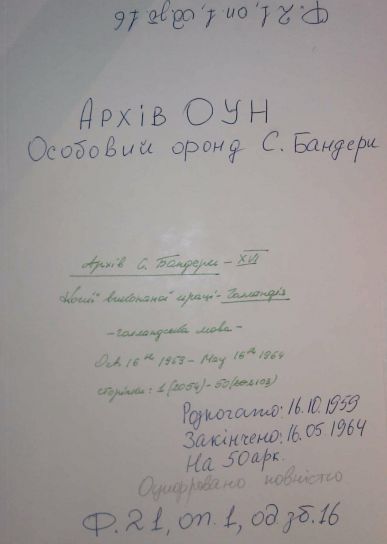 Ф. 21, оп. 1, од зб 16
Архів ОУН
Особовий фонд С. Бандери
Архів С. Бандери – XVI
Копії виконаної праці – Голландія
– голландська мова –
Oct 16th 1953 – May 16th 1964
сторінки: 1 (2054) – 50 (2103)
Розпочато: 16.10.1959
Закінчено: 16.05.1964
На 50 арк.
Оцифровано повністю
Ф. 21, оп. 1, од. зб. 16